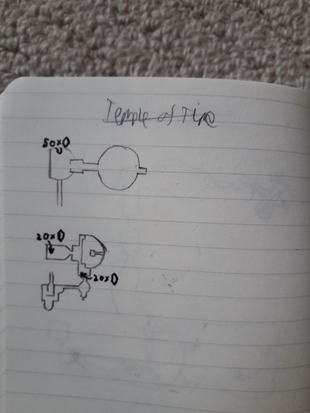 Temple of Time
50xD
20xD
20xD